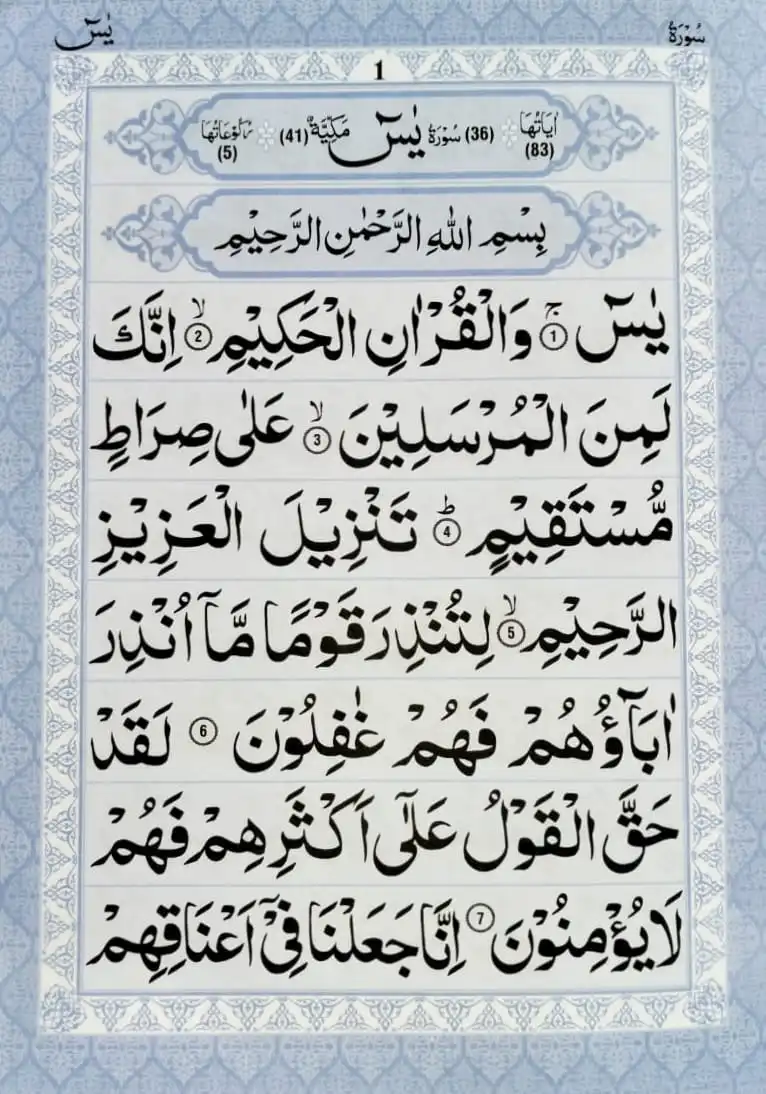 سُوْرَةُ
يٰسٓ
1
اٰيَاتُهَا (83) (36) سُوْرَةُ يٰسٓ مَكِّيَّةٌ (41) رُكُوْعَاتُهَا (5)
بِسْمِ اللّٰهِ الرَّحْمٰنِ الرَّحِيْمِ
يٰسٓ ۚ ① وَالْقُرْاٰنِ الْحَكِيْمِ ۙ ② اِنَّكَ
لَمِنَ الْمُرْسَلِيْنَ ۙ ③ عَلٰى صِرَاطٍ
مُّسْتَقِيْمٍ ؕ ④ تَنْزِيْلَ الْعَزِيْزِ
الرَّحِيْمِ ۙ ⑤ لِتُنْذِرَ قَوْمًا مَّآ اُنْذِرَ
اٰبَآؤُهُمْ فَهُمْ غٰفِلُوْنَ ⑥ لَقَدْ
حَقَّ الْقَوْلُ عَلٰٓى اَكْثَرِهِمْ فَهُمْ
لَا يُؤْمِنُوْنَ ⑦ اِنَّا جَعَلْنَا فِيْٓ اَعْنَاقِهِمْ